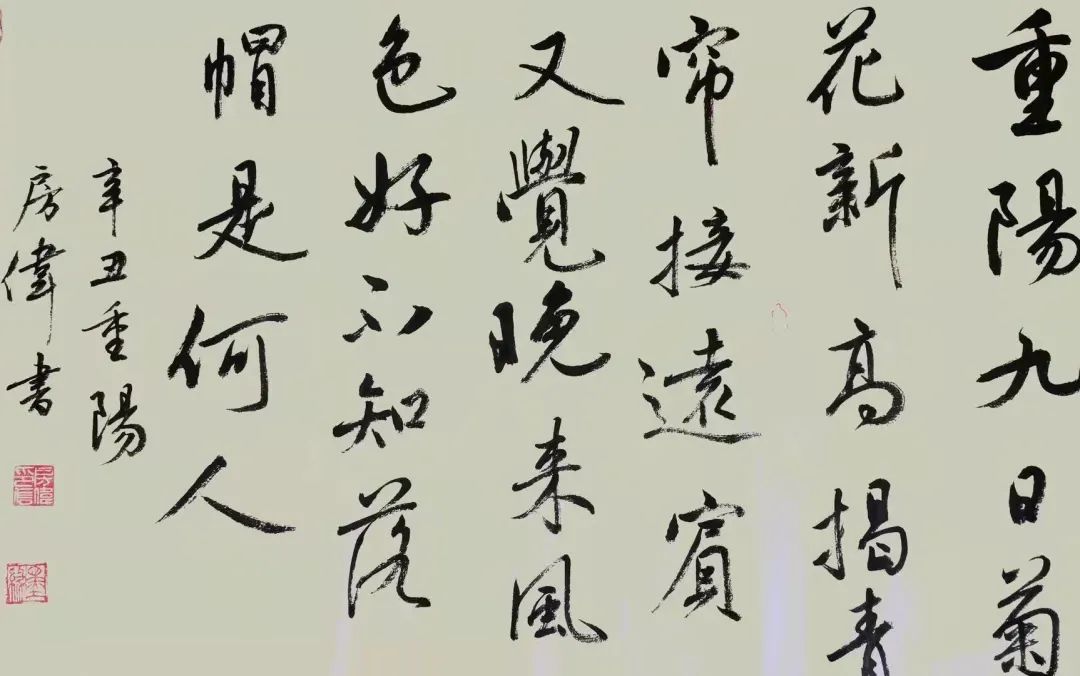 重陽九日菊
花新高揭青
帘接遠賓
又覺晚来風
色好不知落
帽是何人
辛丑重陽
房偉書